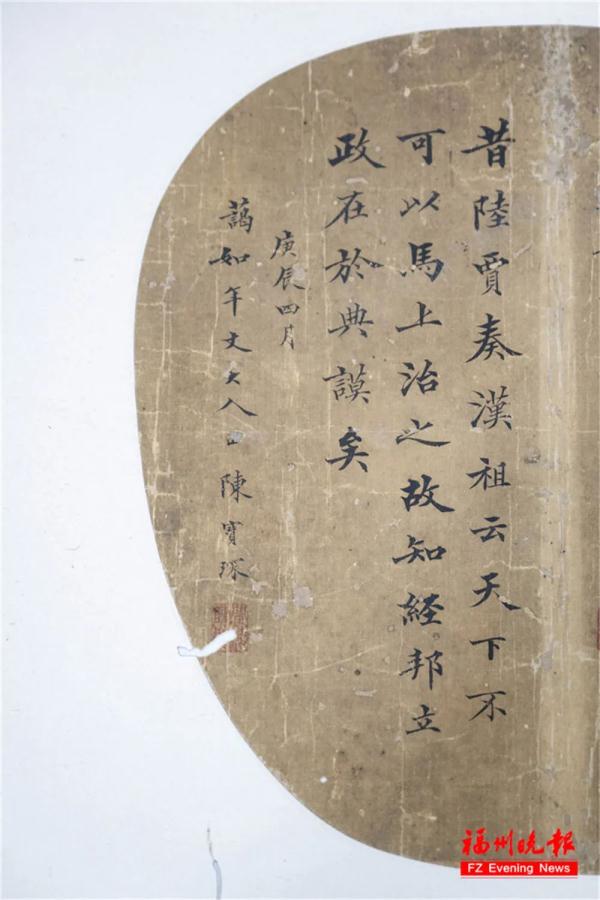 昔陸賈奏漢祖云天下不
可以馬上治之故知經邦立
政在於典謨矣
庚辰四月
藹如年丈大人 陳寶琛
福州晚报
FZ Evening News